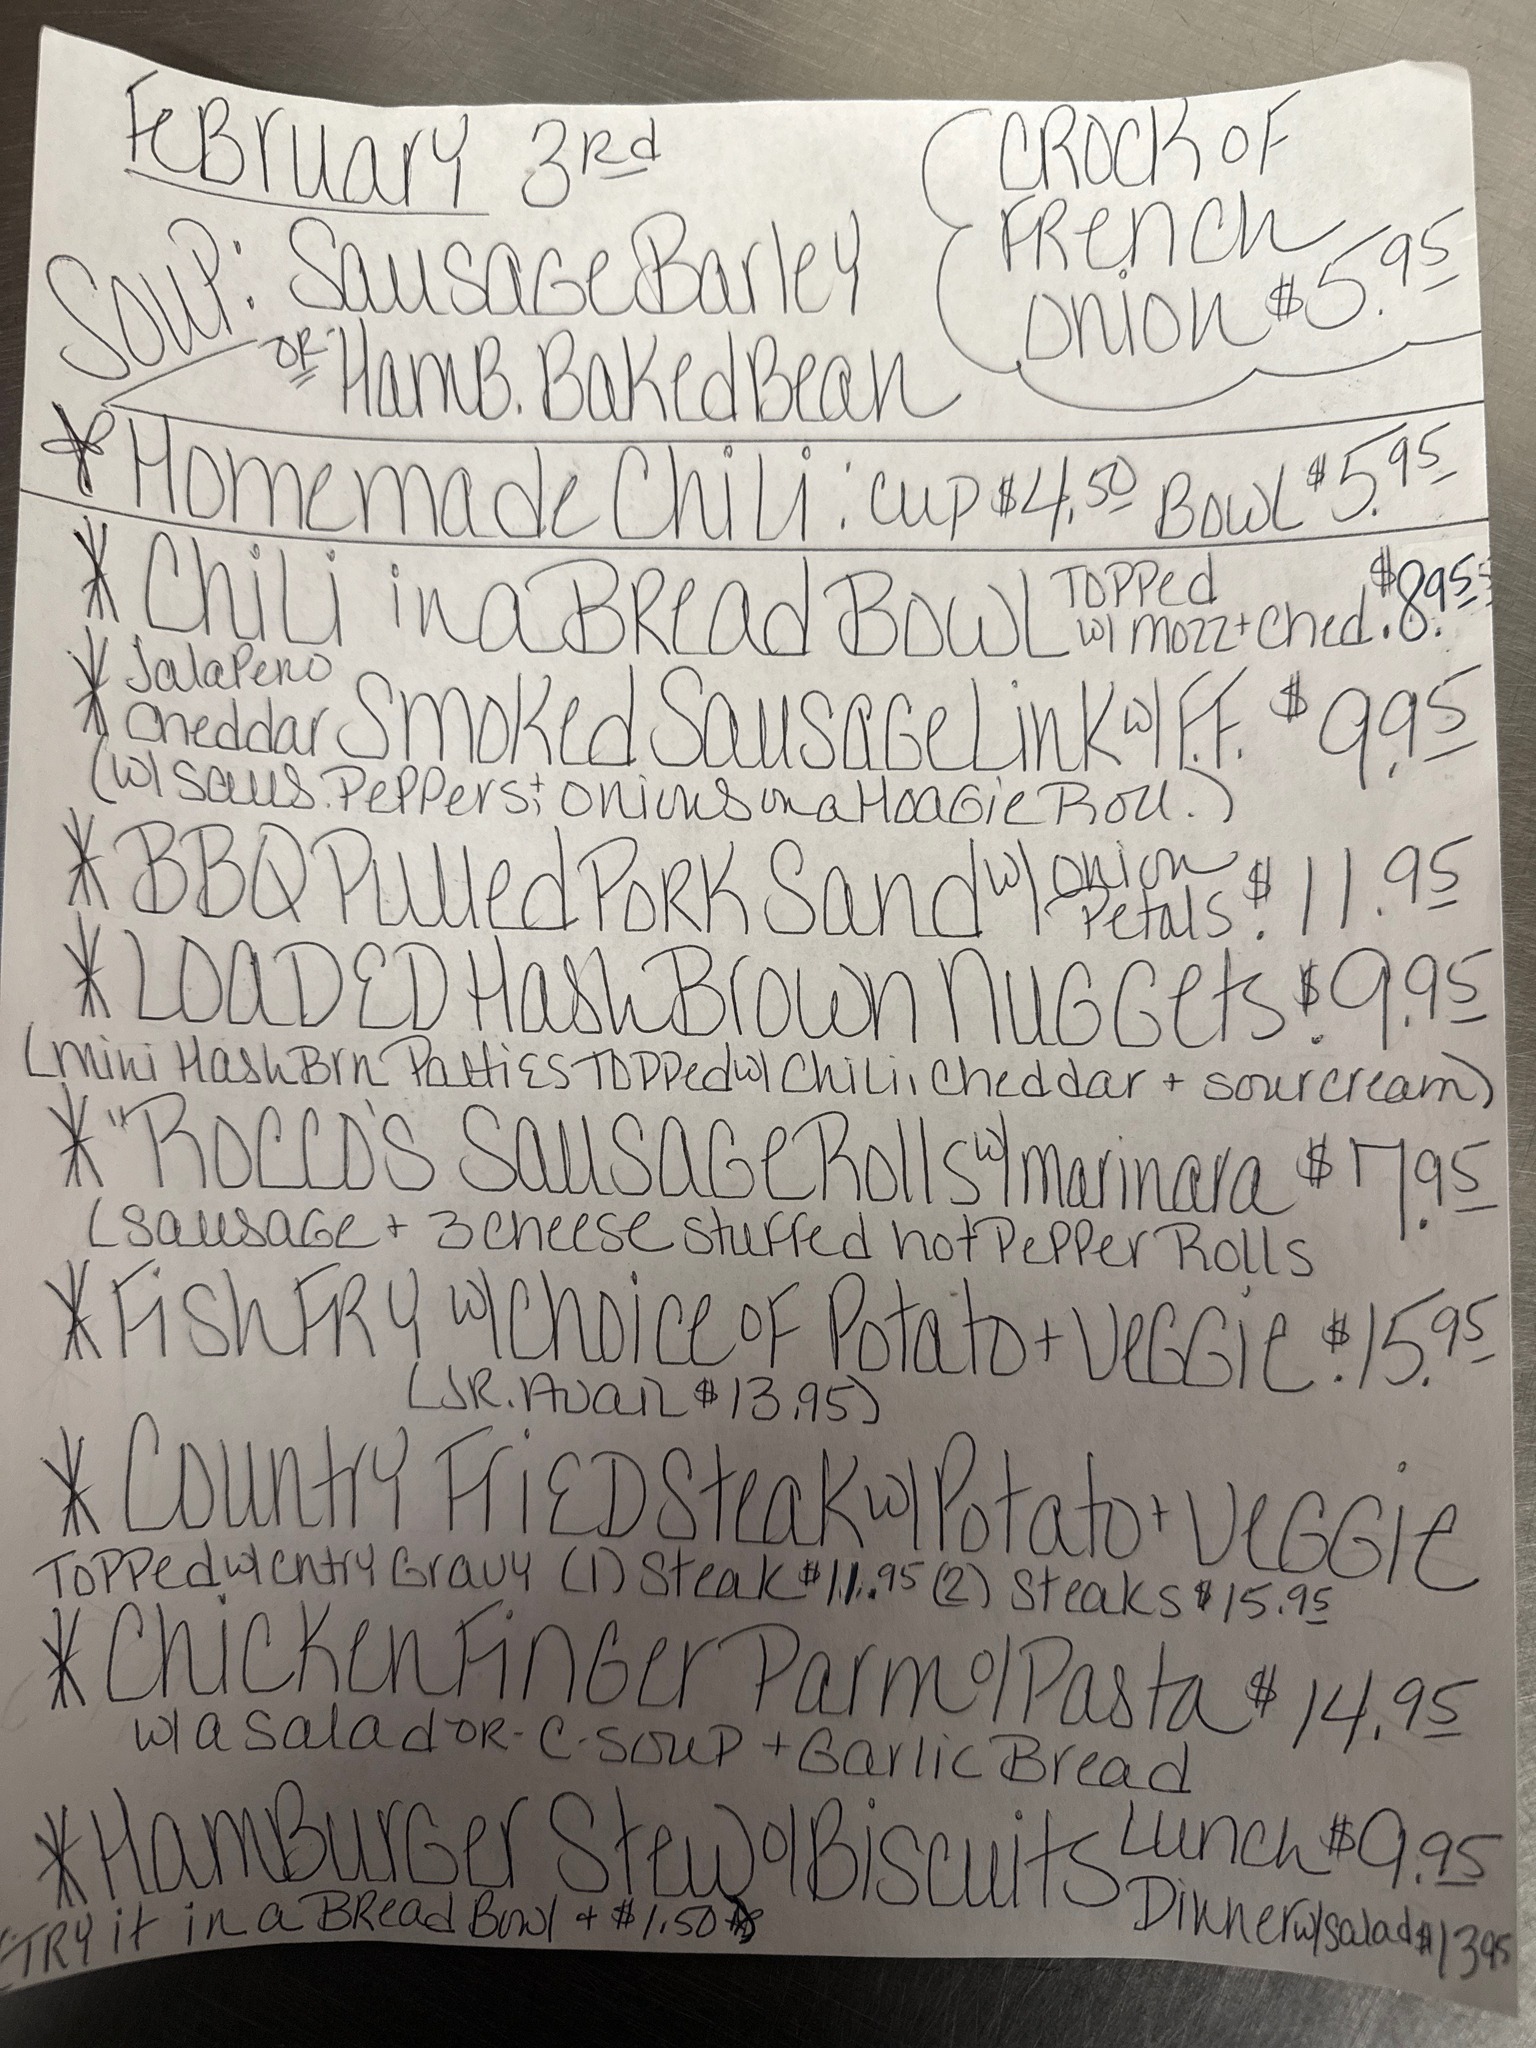 February 3rd
Crock of
French
Onion $5.95
Soup: Sausage Barley
or Hamb. Baked Bean
* Homemade Chili: cup $4.50 Bowl $5.95
* Chili in a Bread Bowl Topped w/ mozz + Ched. $8.95
* Jalapeno Cheddar Smoked Sausage Link w/ F.F. $9.95
(w/ saus. Peppers + onions on a Hoagie Roll.)
* BBQ Pulled Pork Sand w/ onion Petals. $11.95
* LOADED Hash Brown Nuggets. $9.95
(mini Hash Brn Patties Topped w/ Chili, cheddar + sour cream)
* "Rocco's Sausage Rolls w/ marinara $7.95
(sausage + 3 cheese stuffed hot Pepper Rolls
* Fish Fry w/ choice of Potato + Veggie. $15.95
(JR. Avail $13.95)
* Country Fried Steak w/ Potato + Veggie
Topped w/ cntry Gravy (1) Steak $11.95 (2) Steaks $15.95
* Chicken Finger Parm o/ Pasta $14.95
w/ a salad or - c - soup + Garlic Bread
* Hamburger Stew o/ Biscuits Lunch $9.95
Try it in a Bread Bowl + $1.50 Dinner w/ salad $13.95